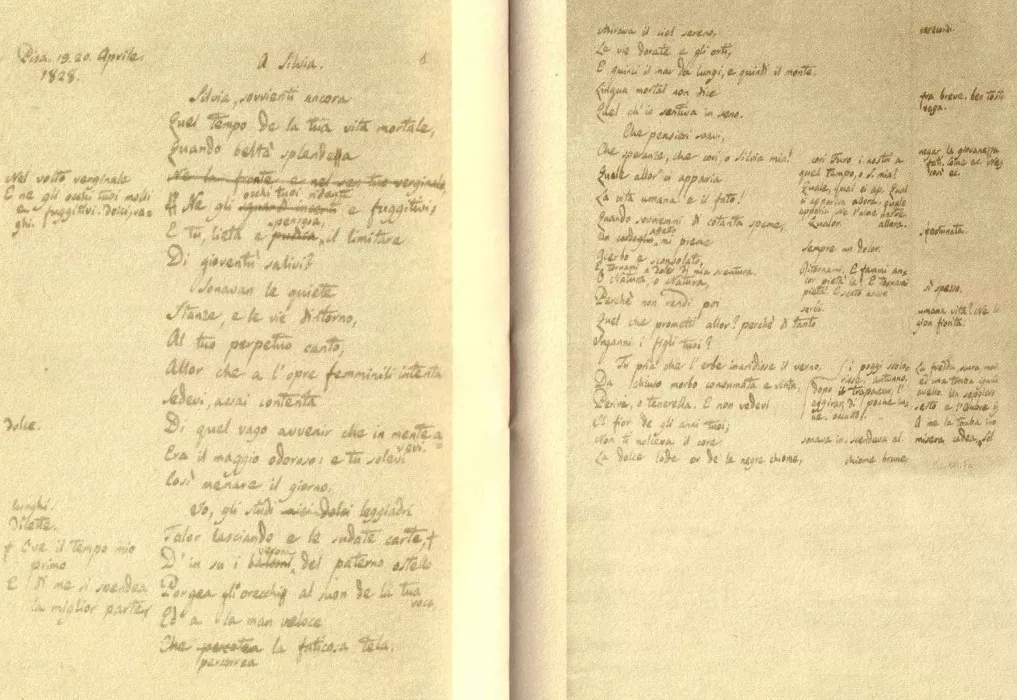 Pisa. 19. 20. Aprile.
1828.
A Silvia.
1
Silvia, sovvienti ancora
Quel tempo de la tua vita mortale,
Quando beltà splendea
Ne la fronte e nel sen tuo verginale,
occhi tuoi ridenti
E Ne gli sguardi incerti e fuggitivi,
pensosa,
E tu, lieta e pudica, il limitare
Di gioventù salivi?
Sonavan le quiete
Stanze, e le vie dintorno,
Al tuo perpetuo canto,
Allor che a l'opre femminili intenta
Sedevi, assai contenta
Di quel vago avvenir che in mente a-
vevi.
Era il maggio odoroso: e tu solevi
Così menare il giorno.
Io, gli studi miei dolci leggiadri
Talor lasciando e le sudate carte, †
veroni
D' in su i balconi del paterno ostello
Porgea gli orecchi al suon de la tua
voce,
Ed a la man veloce
Che percotea la faticosa tela.
percorrea
Nel volto verginale
E ne gli occhi tuoi molli
e fuggitivi. dolci, va-
ghi.
dolce.
lunghi.
dilette.
† Ove il tempo mio
primo
E di me si spendea
la miglior parte,
Mirava il ciel sereno,
Le vie dorate e gli orti,
E quinci il mar da lungi, e quindi il monte.
Lingua mortal non dice
Quel ch' io sentiva in seno.
Che pensieri soavi,
Che speranze, che cori, o Silvia mia!
Quale allor ci apparia
La vita umana e il fato!
Quando sovviemmi di cotanta speme,
affetto
Un cordoglio mi preme
Acerbo e sconsolato,
E tornami a doler di mia sventura.
O Natura, o Natura,
Perchè non rendi poi
Quel che prometti allor? perchè di tanto
Inganni i figli tuoi?
Tu pria che l' erbe inaridisse il verno,
Da chiuso morbo consumata e vinta,
Perivi, o tenerella. E non vedevi
Il fior de gli anni tuoi;
Non ti molceva il core
La dolce lode or de le negre chiome,
cori furo i nostri a
quel tempo, o Si. mia!
Quale, quai ci ap. Qual
ci appariva allora. quale
Qualor allora.
sempre un dolor.
Ritornami. E fammi an-
cor pietà le. E tornami
pietà. E sento ancor
i poggi scolo-
risse. autunno.
dopo il trapassar, l'
aggirar di poche lu-
ne. occulto.
sonava in. scendeva al.
chiome brune
tra breve. ben tosto
vaga.
negar la giovanezza
sfortunata.
sì spesso.
umana vita? Ne la
gion fiorita.
La fredda
ed una tomba ignuda
A me la tomba
misera cadea,